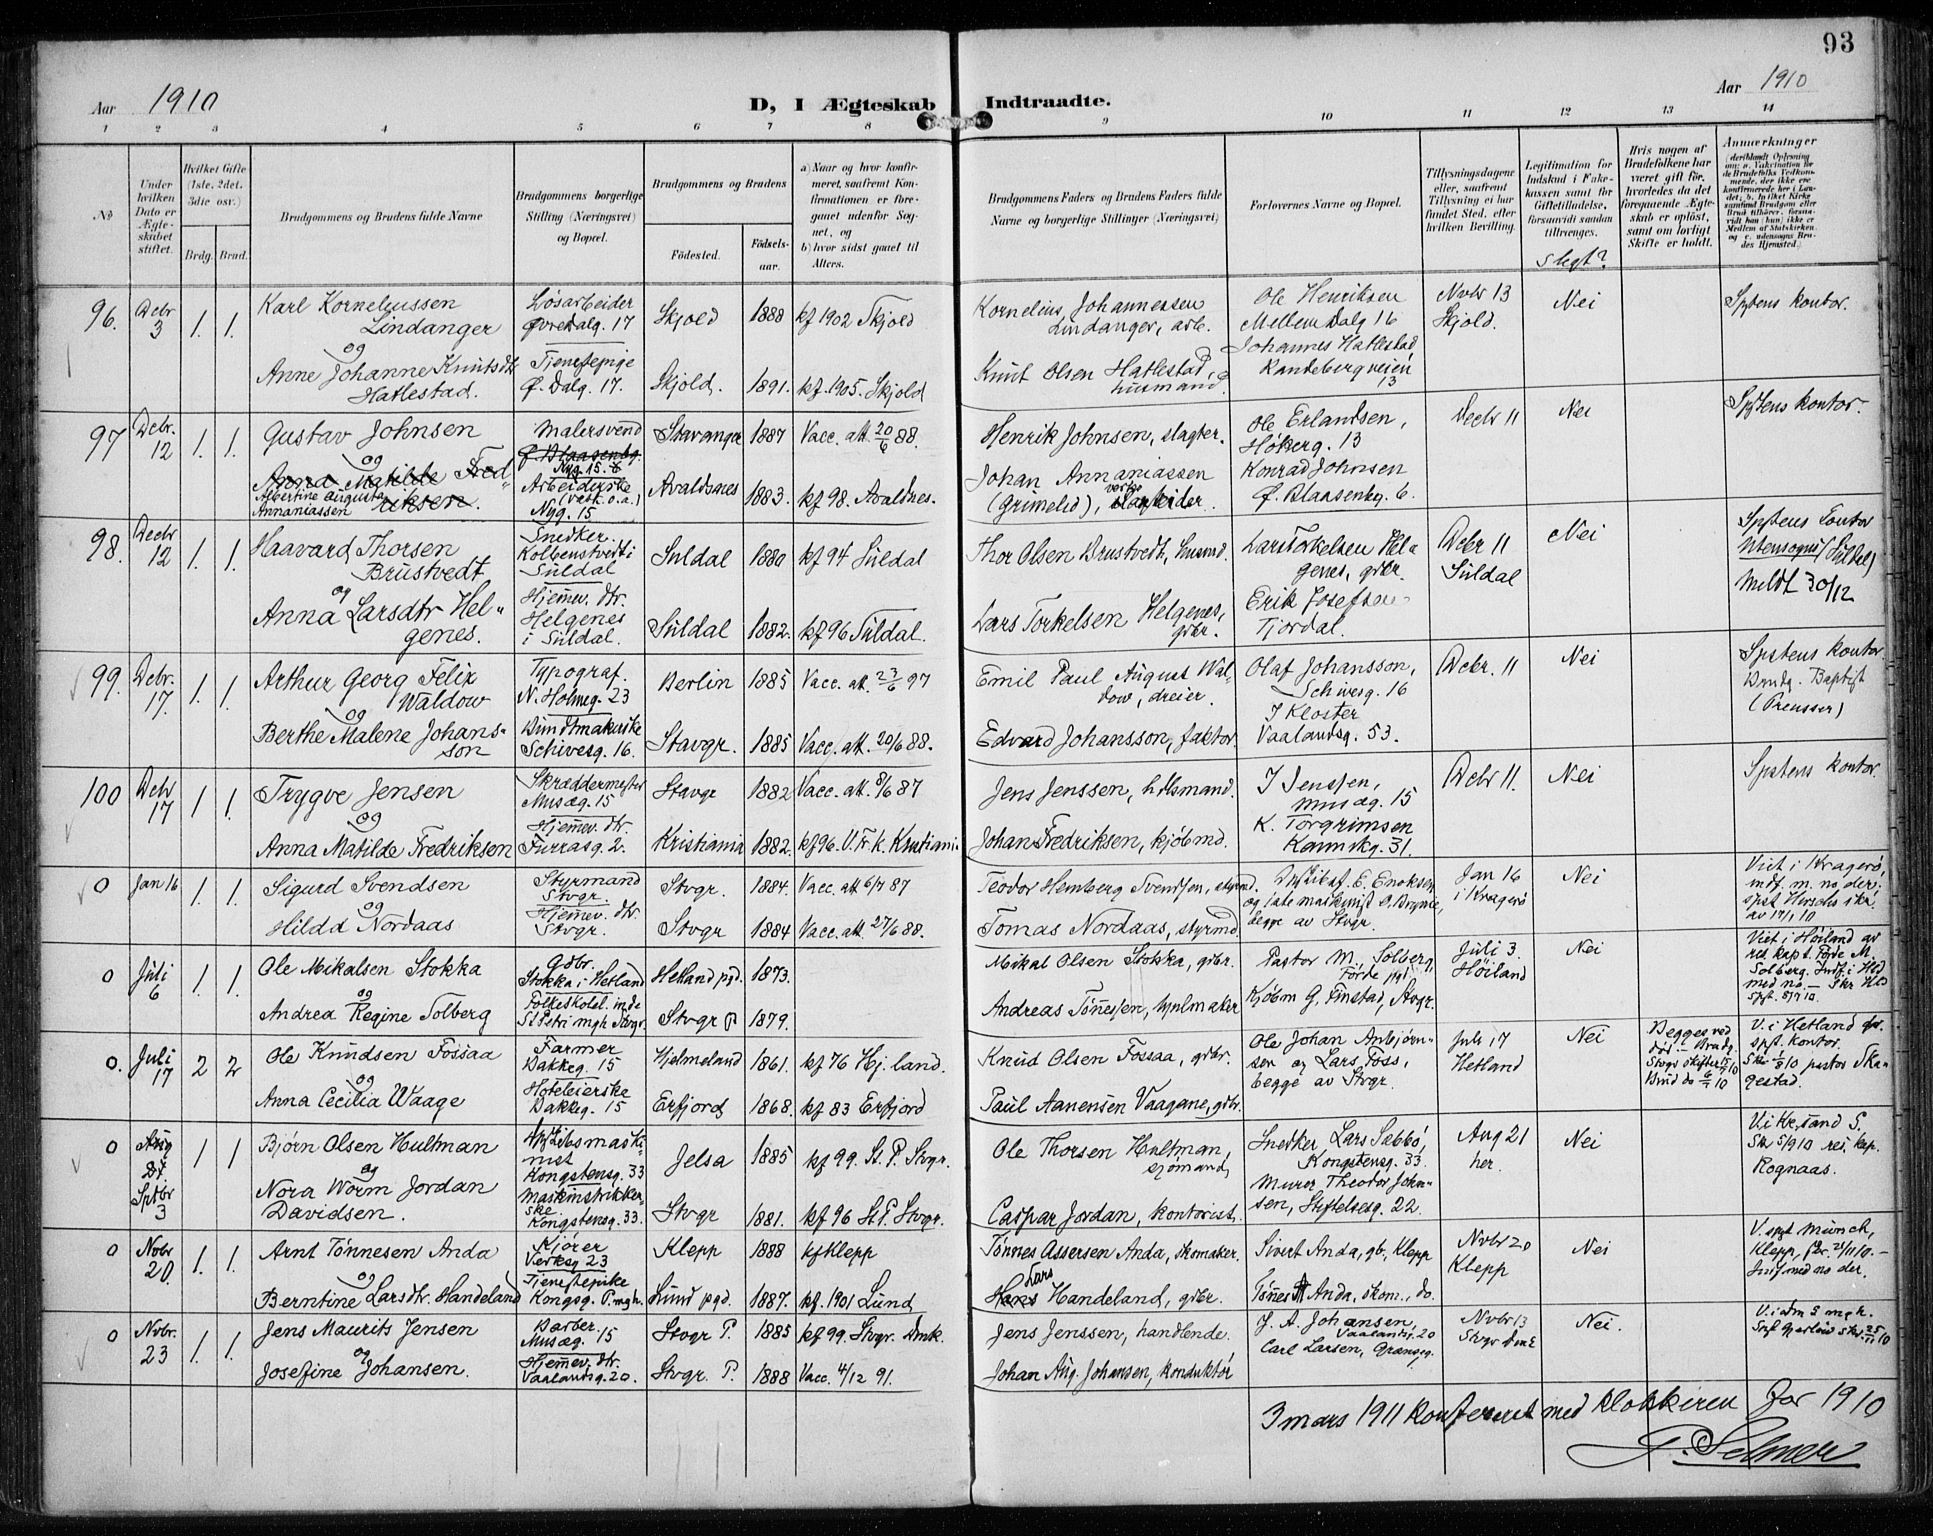 93
Aar 1910
D, I Ægteskab Indtraadte.
Aar 1910
1 2 3 4 5 6 7 8 9 10 11 12 13 14
No
Under hvilken Dato er Ægteskabet stiftet.
Hvilket Gifte (1ste, 2det, 3die osv.)
Brdg. Brud.
Brudgommens og Brudens fulde Navne
Brudgommens borgerlige Stilling (Næringsvei) og Bopæl.
Brudgommens og Brudens
Fødested.
Fødselsaar.
a) Naar og hvor konfirmeret, saafremt Konfirmationen er foregaaet udenfor Sognet, og
b) hvor sidst gaaet til Alters.
Brudgommens Faders og Brudens Faders fulde Navne og borgerlige Stillinger (Næringsvei)
Forlovernes Navne og Bopæl.
Tillysningsdagene eller, saafremt Tillysning ei har fundet Sted, efter hvilken Bevilling.
Legitimation for Indskud i Enkekassen samt for Giftetilladelse, forsaavidt saadan tiltrænges.
Slegt?
Hvis nogen af Brudefolkene har været gift før, hvorledes da det foregaaende Ægteskab er opløst, samt om lovligt Skifte er holdt.
Anmærkninger
96. Decbr 3 1. 1.
Karl Korneliussen Lindanger
og
Anne Johanne Knutsdtr Hatlestad.
Løsarbeider Øvre Dalg. 17
Tjenestepige Ø. Dalg. 17.
Skjold 1888 kf 1902 Skjold
Skjold. 1891. kf. 1905. Skjold
Kornelius Johannessen Lindanger, arb.
Knut Olsen Hatlestad, husmand
Ole Henriksen Mellem Dalg 16
Johannes Hatlestad Randebergveien 13
Novbr 13 Skjold.
Nei
Sptens kontor.
97 Decbr. 12 1. 1.
Gustav Johnsen
og
Anna Matilde Fredriksen.
Albertine Augusta Annaniassen
Malersvend
Ø. Blaasenbg. 6
Nyg. 15.
Arbeiderske (vask. o.a.) Nyg. 15
Stavanger 1887 Vacc. att. 20/6 88.
Avaldsnes 1883. kf 98. Avaldnes.
Henrik Johnsen, slagter.
Johan Annaniassen (Grimelid), arbeider
Ole Erlandsen, Høkerg. 13
Konrad Johnsen Ø. Blaasenbg. 6.
Decbr 11
Nei
Sptens kontor.
98. Decbr 12 1. 1.
Haavard Thorsen Brustvedt
og
Anna Larsdtr Helgenes.
Snedker. Kolbenstvedt i Suldal
Hjemmev. dtr. Helgenes i Suldal.
Suldal 1880 kf 94 Suldal
Suldal 1882. kf 96 Suldal.
Thor Olsen Brustvedt, husmd.
Lars Torkelsen Helgenes, gbr.
Lars Torkelsen Helgenes, gbr.
Erik Josefsen Tjordal.
Decbr 11 Suldal
Nei
Sptens kontor
Utensogns (Suldal)
Meldt 30/12
99. Decbr. 17. 1. 1.
Arthur Georg Felix Waldow
og
Berthe Malene Johansson
Typograf. N. Holmeg. 23
Bundtmakerske Schivesg. 16.
Berlin 1885 Vacc. att. 23/6 97
Stavgr. 1885 Vacc. att. 20/6 88.
Emil Paul August Waldow, dreier.
Edvard Johansson, faktor.
Olaf Johansson, Schivesg. 16
J Kloster Vaalandsg. 53.
Decbr. 11
Nei
Sptens kontor.
Brudg. Baptist (Preusser)
100 Decbr 17 1 1.
Trygve Jensen
og
Anna Matilde Fredriksen
Skræddermester Musæg. 15
Hjemmev. dtr. Furrasg. 2.
Stavgr 1882 Vacc. att. 8/6 87
Kristiania 1882. kf 96. V. Fr. k. Kristiania
Jens Jenssen, hdlsmand.
Johan Fredriksen, kjøbmd.
J Jenssen, Musæg. 15
K. Torgrimsen Kannikg. 31.
Decbr 11.
Nei
Sptens kontor.
0 Jan 16 1. 1.
Sigurd Svendsen
og
Hilda Nordaas
Styrmand Stvgr.
Hjemmev. dtr. Stvgr.
Stvgr. 1884. Vacc. att 6/7 87
Stvgr 1884 Vacc. att. 27/6 88.
Teodor Hemberg Svendsen, styrmd.
Tomas Nordaas, styrmd.
E. Enoksen og 1ste maskinist O. Bryne, begge av Stvgr.
Jan 16 i Kragerø
Nei
Viet i Kragerø, indf. m. no. der; spst Hersehs skr. av 17/1 10
0 Juli 6 1. 1.
Ole Mikalsen Stokka
og
Andrea Regine Solberg
Gdbr. Stokka i Hetland
Folkeskolel. inde St Petri mgh Stvgr.
Hetland pgd. 1873.
Stvgr P 1879.
Mikal Olsen Stokka, gbr.
Andreas Tønnesen, hjulmaker
Pastor M. Solberg, Førde pgd
Kjøbm G. Finstad, Stvgr.
Juli 3. Høiland
Nei
Viet i Høiland av res kap t. Førde M. Solberg. Indf. i Hld med no — Skr Hld Spst. 8/7 10.
0. Juli 17 2 2
Ole Knudsen Fossaa
og
Anna Cecilia Waage
Farmer Bakkeg. 15
Hoteleierske Bakkeg. 15
Hjelmeland 1861. kf 76 Hj. land.
Erfjord 1868. kf 83 Erfjord
Knud Olsen Fossaa, gbr.
Paul Aanensen Vaagane, gbr.
Ole Johan Anbjørnsen og Lars Foss, begge av Stvgr.
Juli 17 Hetland
Nei
Begges ved død — Brudg. Stvgr skifter 15/7 10 Brud do 6/7 10
V. i Hetland spst. kontor. Skr 1/8 10 pastor Skagestad.
0 Aug Dt. Sptbr 3 1 1
Bjørn Olsen Hultman
og
Nora Worm Jordan Davidsen.
Kongstensg. 33
Maskinstrikkerske Kongstensg. 33.
Jelsa 1885 kf 99. St. P. Stvgr.
Stvgr 1881. kf 96 St P. Stvgr.
Ole Thorsen Hultman, sjømand,
Caspar Jordan, kontorist.
Snedker Lars Sæbbø, Kongstensg. 33.
Murer Theodor Johnsen, Stiftelsesg. 22.
Aug 21 her.
Nei
V i Krsand S. Skr 5/9 10 res. kap. Rognaas.
0 Novbr 20. 1. 1.
Arnt Tønnesen Anda
og
Berntine Larsdtr. Handeland
Kjører Verksg 23
Tjenestepike Kongsg. P. mgh.
Klepp 1888 kf Klepp
Lund pgd. 1887. kf. 1901 Lund
Tønnes Assersen Anda, skomaker.
Lars
Hans Handeland, gbr.
Sivert Anda, gb, Klepp
Tønnes A Anda, skom., do.
Novbr 20 Klepp
Nei
V. spst Munch, Klepp, skr. 21/11 10. — Indf med no der.
0 Novbr. 23 1. 1.
Jens Maurits Jensen
og
Josefine Johansen.
Barber. Musæg. 15
Hjemmev. dtr. Vaalandsg. 20.
Stvgr P. 1885 kf 99. Stvgr. Dmk.
Stvgr. P. 1888 Vacc. 4/12 91.
Jens Jenssen, handlende.
Johan Aug. Johansen, konduktør
J. A. Johansen, Vaalandsg. 20
Carl Larsen, Grænseg.
Novbr 13 Stvgr Domk
Nei.
V. i dm S mgh. Spst Gjerløw skr. 25/11 10
3 mars 1911 konfereret med klokkeren for 1910
P. Selmer